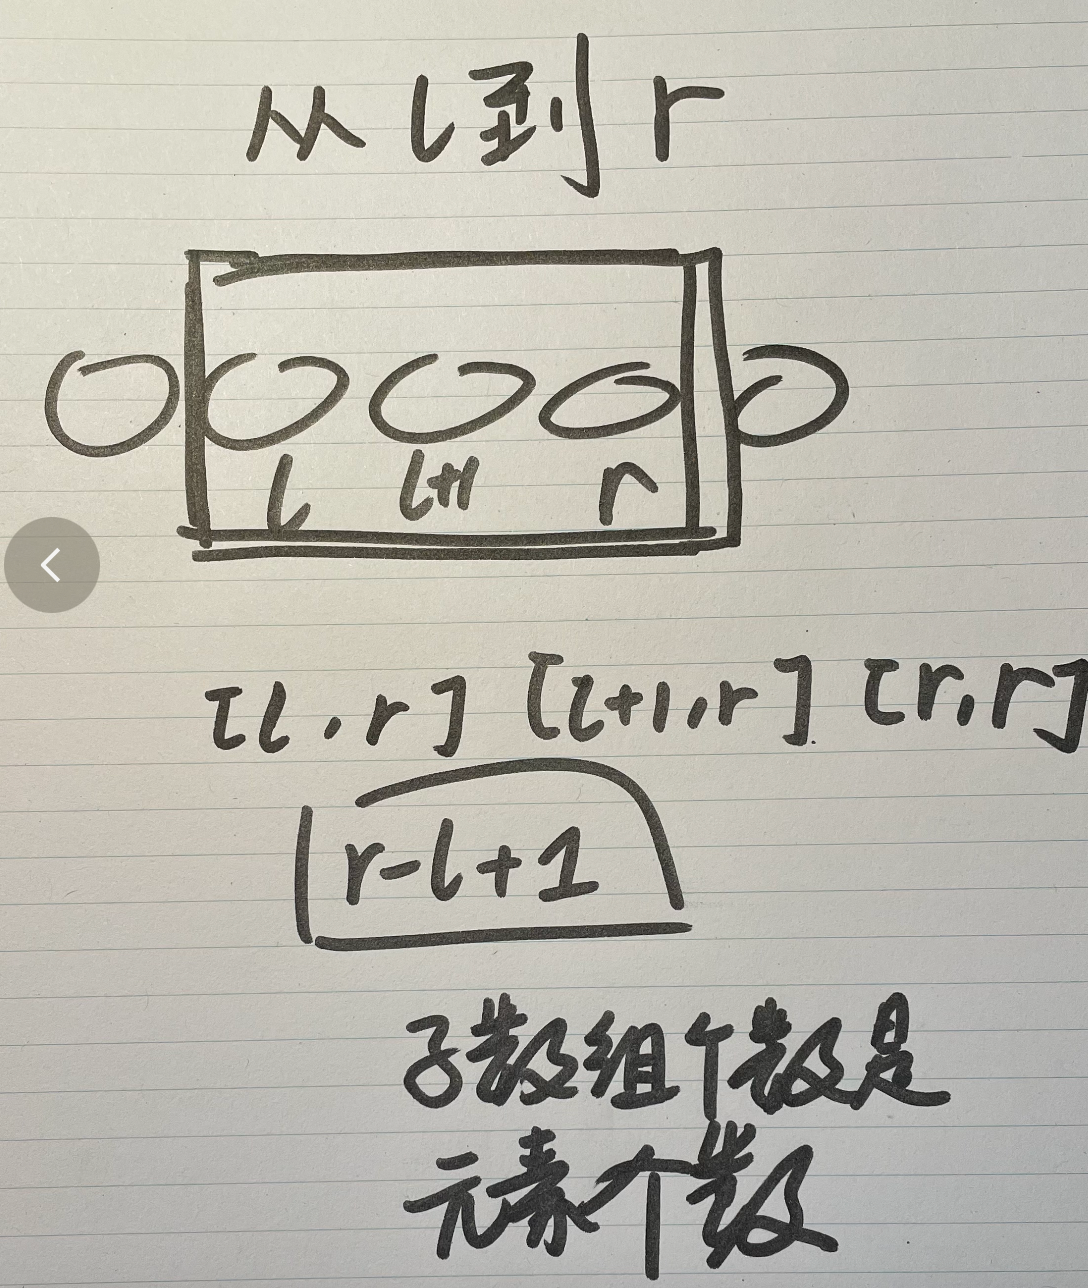 从 l 到 r
l l+1 r
[l,r] [l+1,r] [r,r]
r-l+1
子数组个数是
元素个数